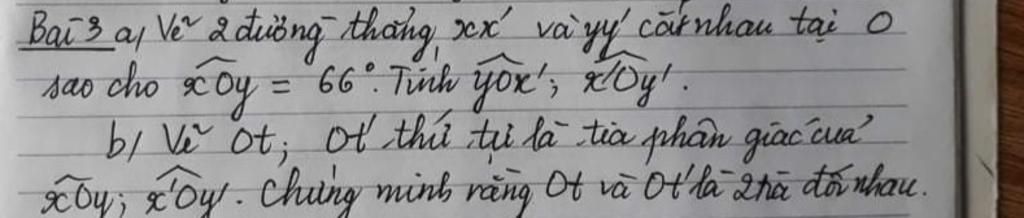 Bài 3 a, Vẽ 2 đường thẳng xx' và yy' cắt nhau tại O
sao cho xOy = 66°. Tính yOx'; x'Oy'.
b/ Vẽ Ot; Ot' thứ tự là tia phân giác của
xOy; x'Oy'. Chứng minh rằng Ot và Ot' là 2 tia đối nhau.